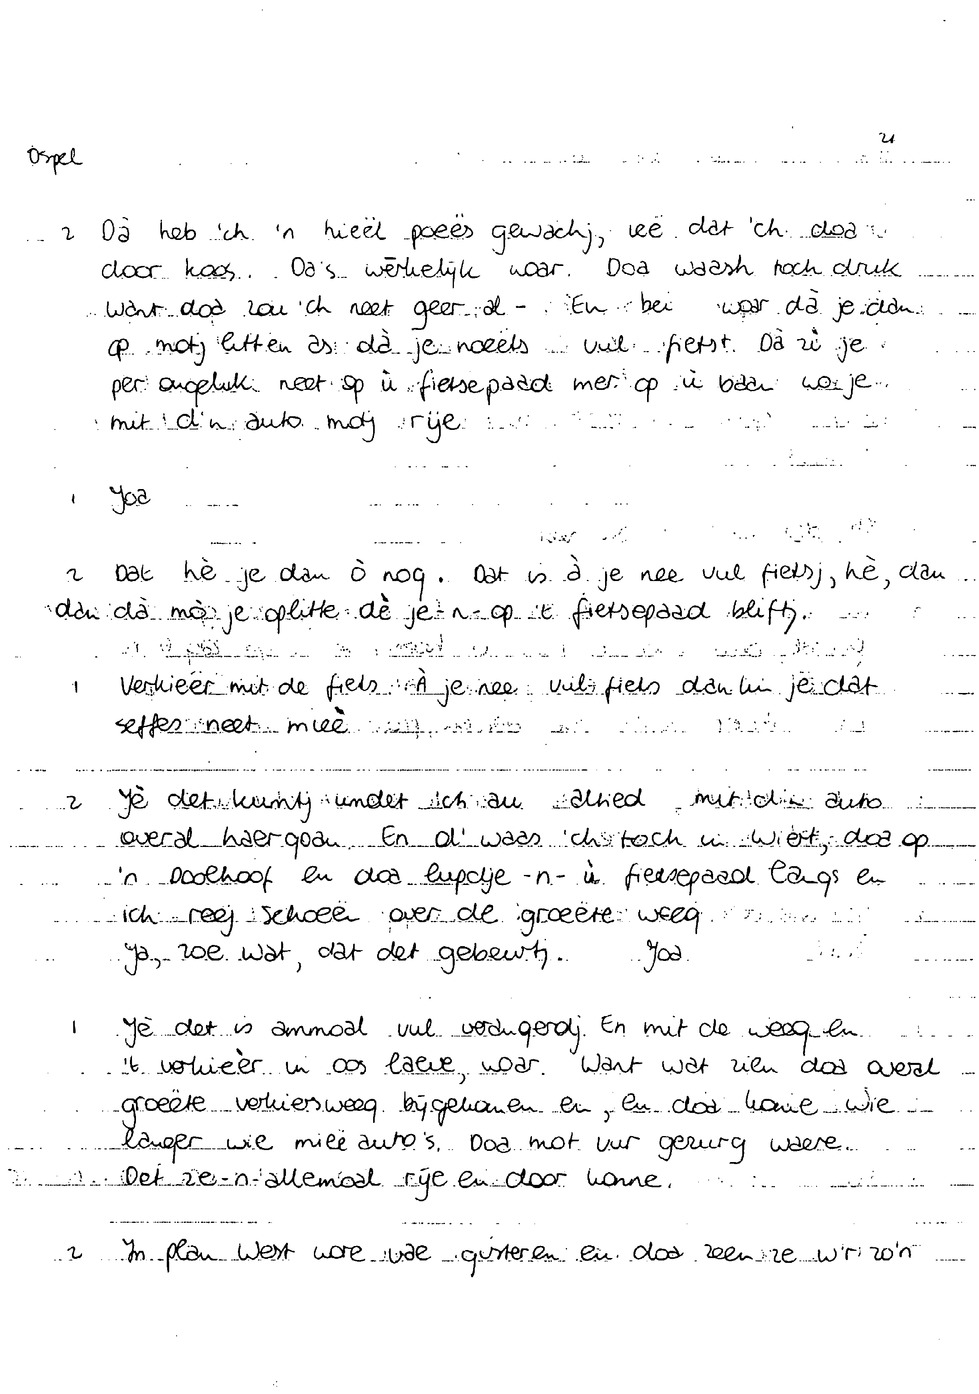 21
Ospel
2 Dà heb 'ch 'n hieël poeës gewachj, ieë dat 'ch doa
door koos. Da's wêrkelijk woar. Doa waash toch druk
want doa zou 'ch neet geer al - En bei woar dà je dan
op motj litten as dà je noeëts vuil fietst. Dà zì je
per ongeluk neet op ù fietsepaad mer op ù baan wo je
mit d'n auto moj rije
1 Joa
2 Dat hè je dan ò nog. Dat is à je nee vuil fietsj, hè, dan
dan dà mò je oplitte dè je-n-op 't fietsepaad bliftj.
1 Verkieër mit de fiets À je nee vuil fiets dan kin je dat
seffes neet mieë
2 Jè det kuntj undet ich au altied mit d'n auto
overal haergoan. En d' waas 'ch toch in Wiërt, doa op
'n Doolhoof en doa lupdje -n- ù fietsepaad langs en
ich reej schoeën over de groeëte weeg
Ja, zoe wat, dat det gebeurtj. Joa
1 Jè det is ammoal vuil verangerdj. En mit de weeg en
't verkieèr in oos laeve, woar. Want wat zien doa overal
groeëte verkiersweeg bijgekomen en, en doa komme wie
langer wie mieë auto's. Doa mot vur gezurg waere.
Det ze-n-allemoal rije en door konne.
2 In plan West wore wae gisteren en doa zeen ze w'r zo'n